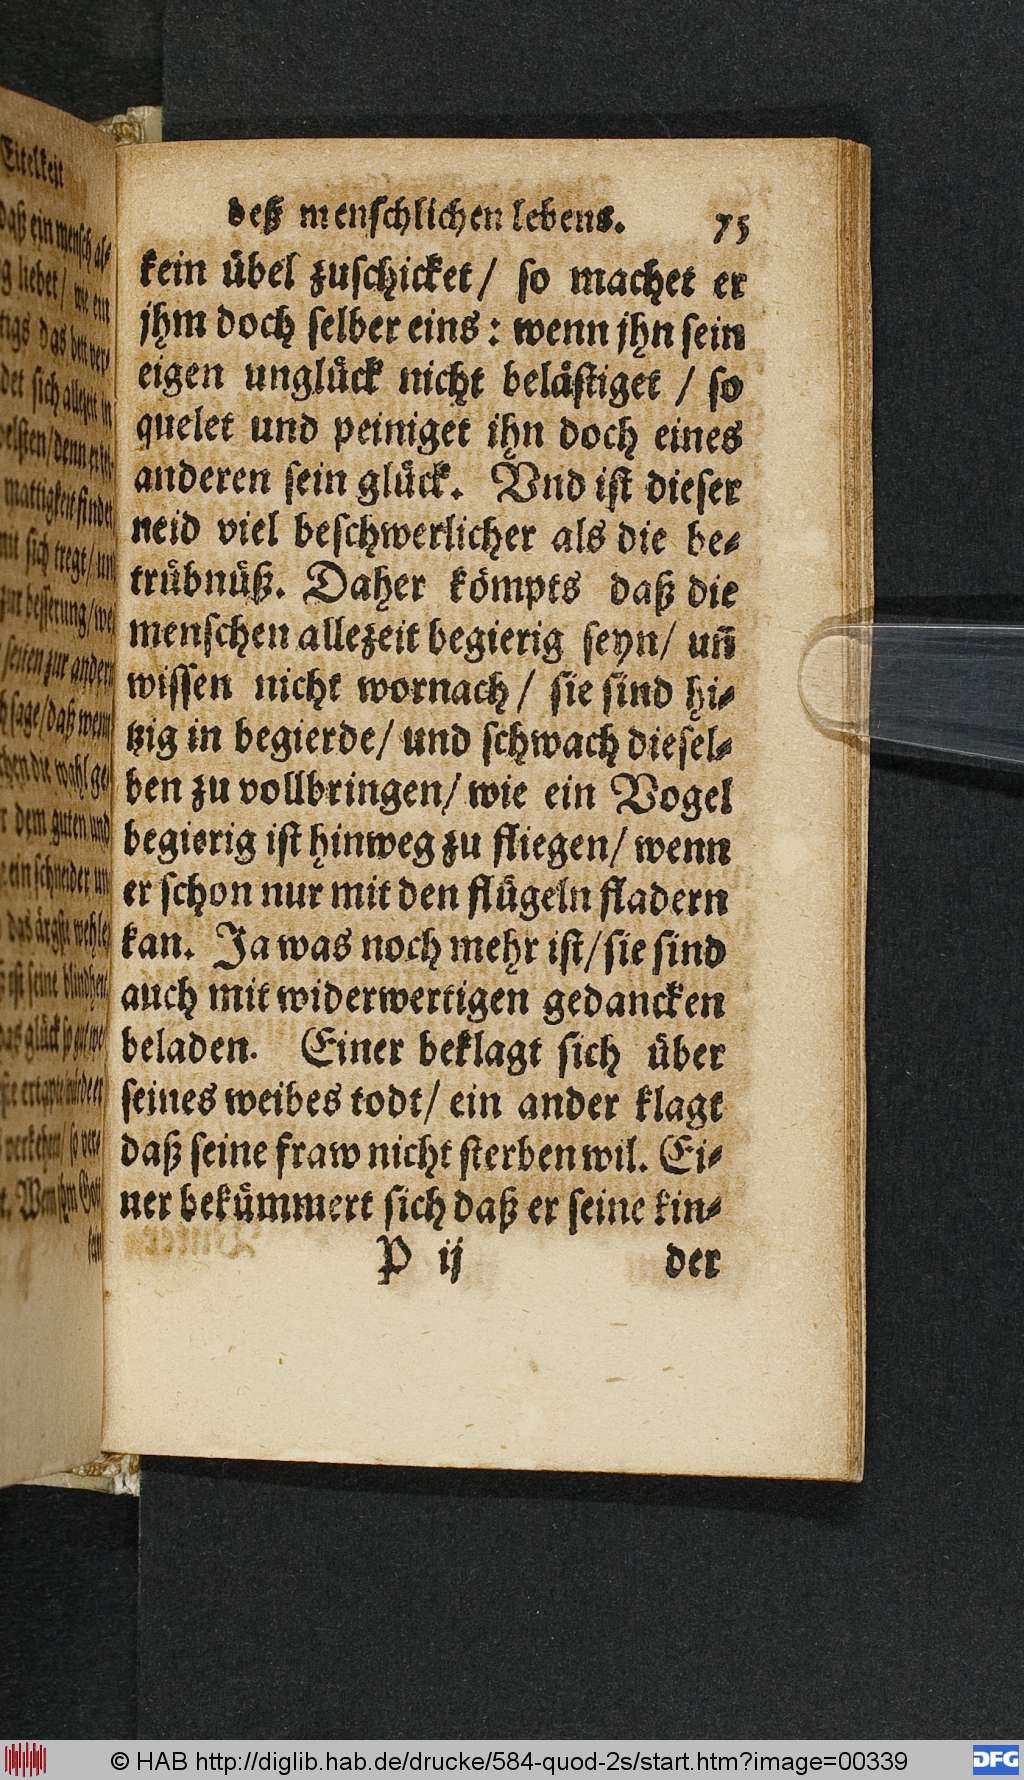 deß menschlichen lebens. 75
kein übel zuschicket / so machet er
jhm doch selber eins : wenn jhn sein
eigen unglück nicht belästiget / so
quelet und peiniget ihn doch eines
anderen sein glück. Vnd ist dieser
neid viel beschwerlicher als die be-
trübnüß. Daher kömpts daß die
menschen allezeit begierig seyn / uñ
wissen nicht wornach / sie sind hi-
tzig in begierde / und schwach diesel-
ben zu vollbringen / wie ein Vogel
begierig ist hinweg zu fliegen / wenn
er schon nur mit den flügeln fladern
kan. Ja was noch mehr ist / sie sind
auch mit widerwertigen gedancken
beladen. Einer beklagt sich über
seines weibes todt / ein ander klagt
daß seine fraw nicht sterben wil. Ei-
ner bekümmert sich daß er seine kin-
P ij der
Eitelkeit
daß ein mensch al-
liebet / wie ein
das den ver-
det sich allezeit in
mattigkeit findet
sich tregt / un
zur besserung / we
seiten zur andern
sage / daß wenn
die wahl ge-
dem guten und
ein schneider un
das ärgste wehle
ist seine blindheit
das glück so
Wen ihm Gott
© HAB http://diglib.hab.de/drucke/584-quod-2s/start.htm?image=00339
DFG